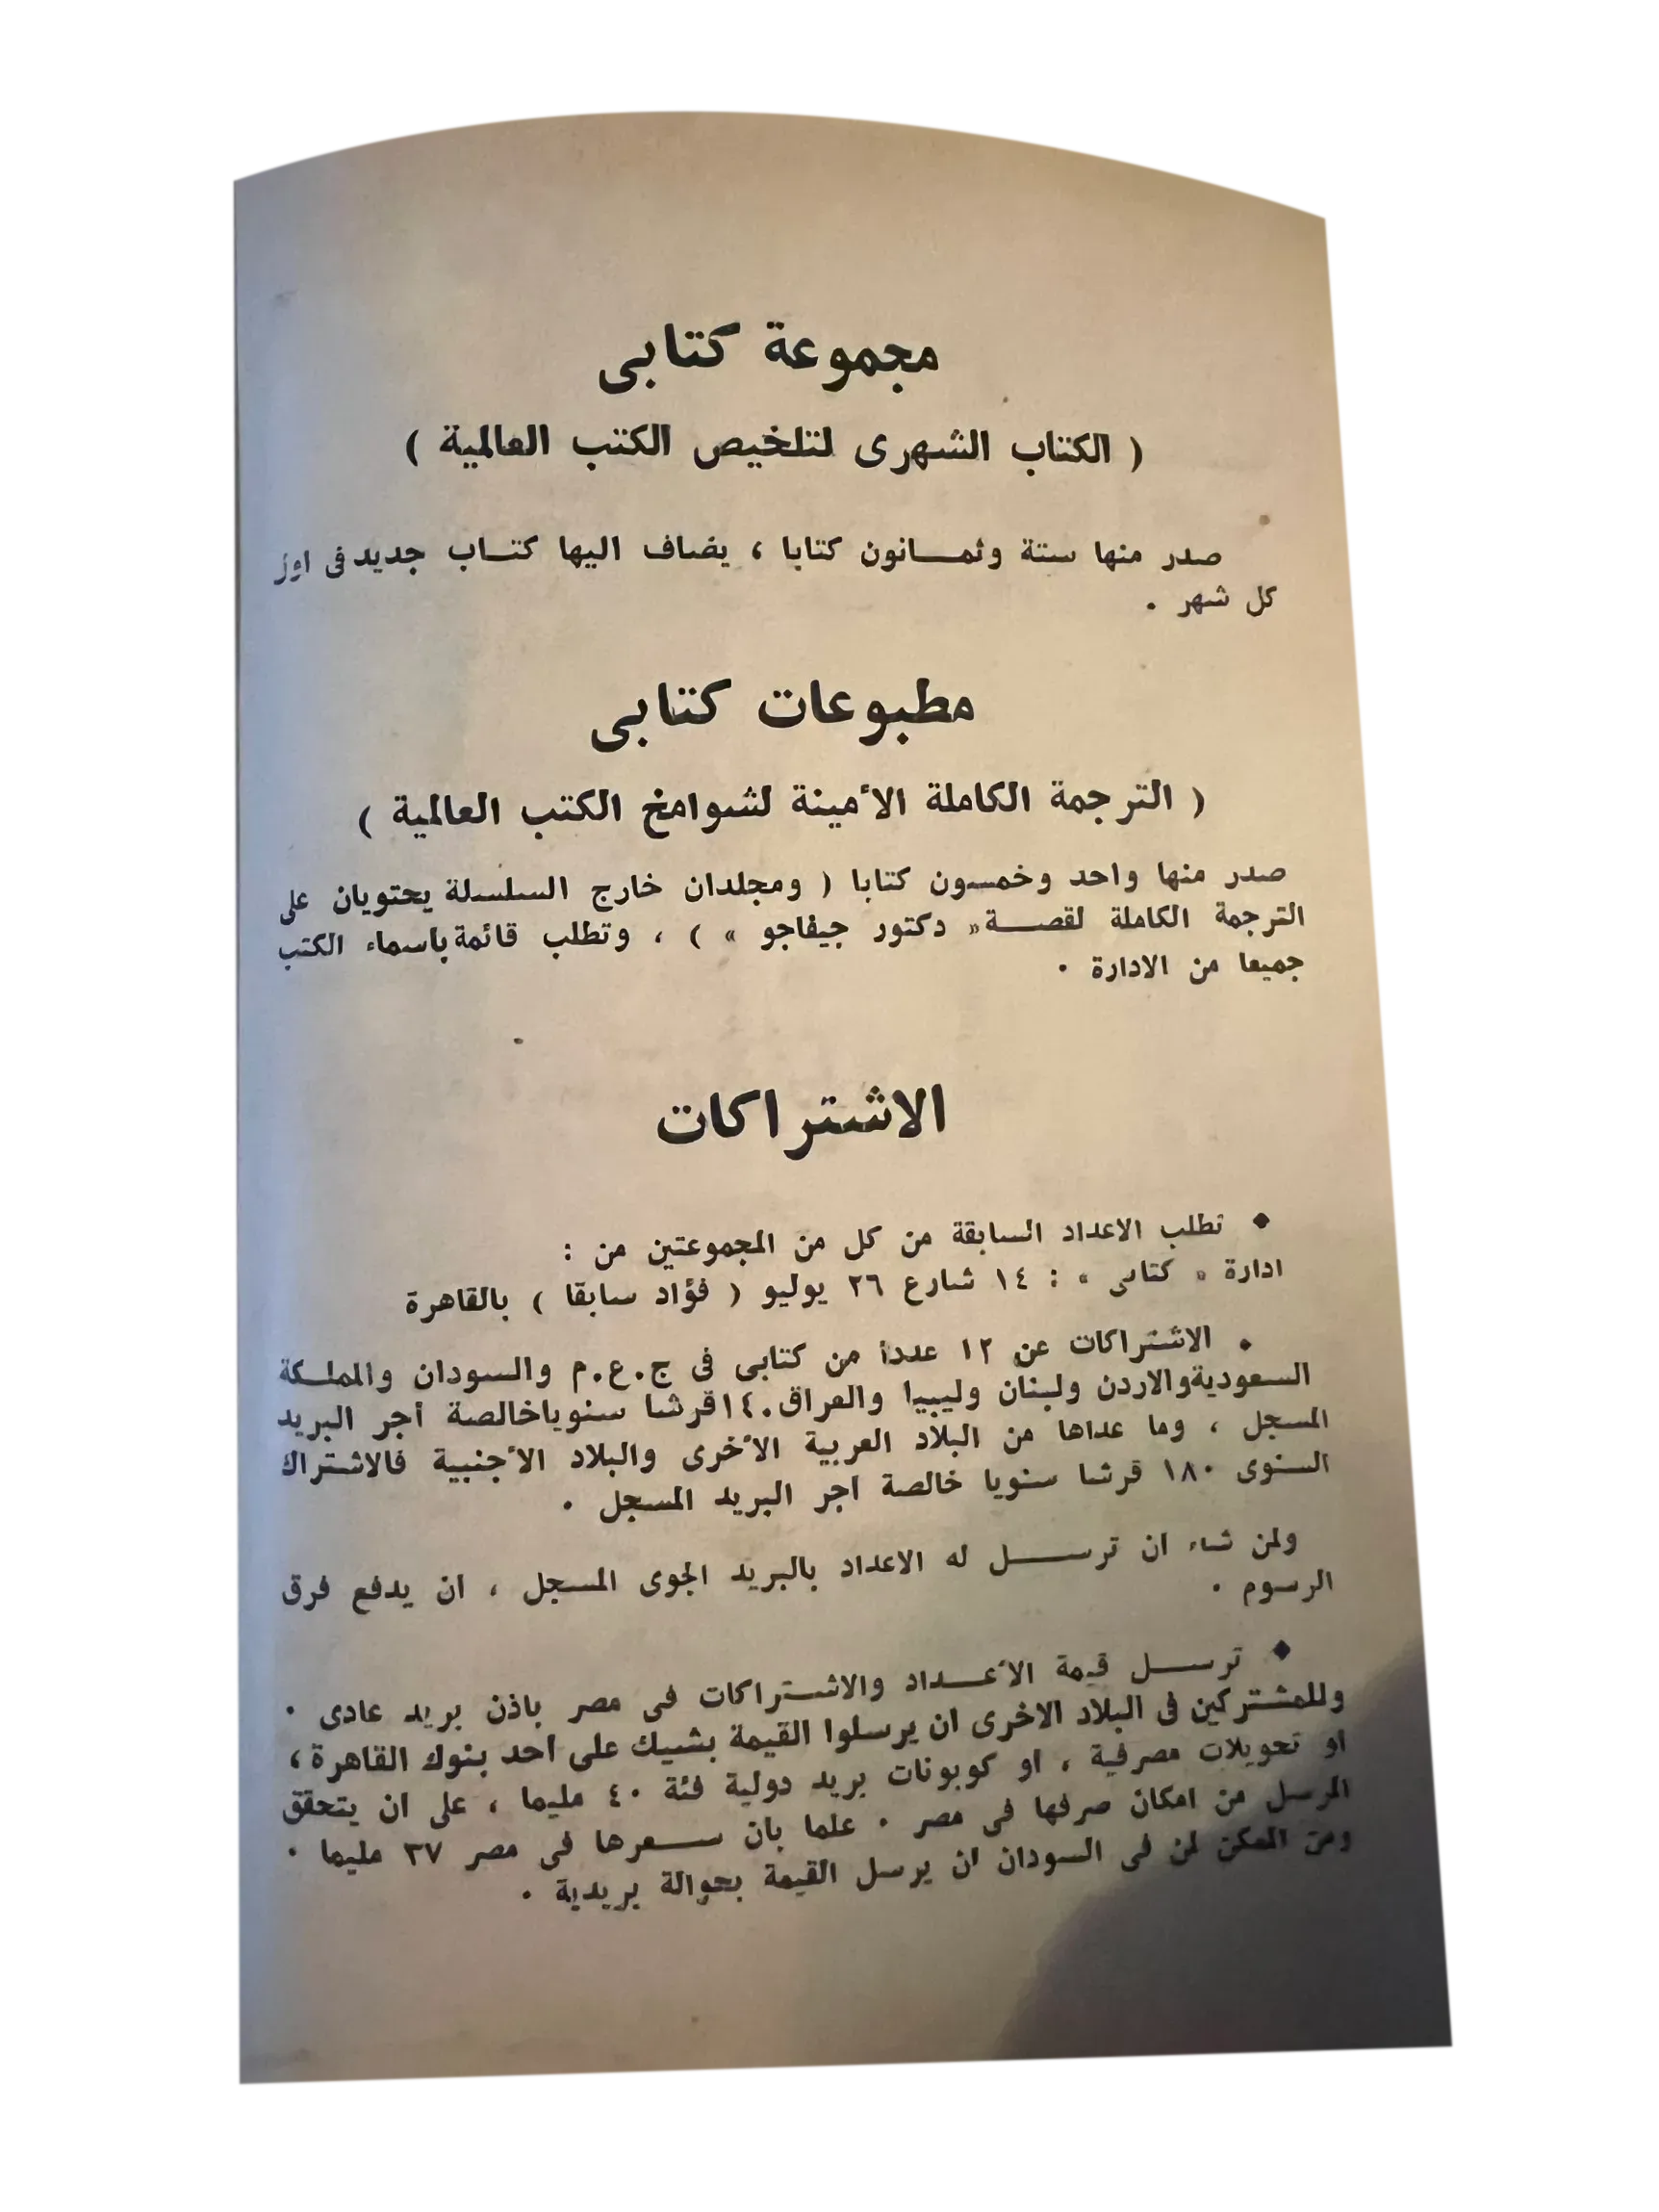 مجموعة كتابى
( الكتاب الشهرى لتلخيص الكتب العالمية )
صدر منها ستة وثمانون كتابا ، يضاف اليها كتاب جديد فى اول
كل شهر .
مطبوعات كتابى
( الترجمة الكاملة الأمينة لشوامخ الكتب العالمية )
صدر منها واحد وخمسون كتابا ( ومجلدان خارج السلسلة يحتويان على
الترجمة الكاملة لقصة « دكتور جيفاجو » ) ، وتطلب قائمة باسماء الكتب
جميعا من الادارة .
الاشتراكات
◆ تطلب الاعداد السابقة من كل من المجموعتين من :
ادارة « كتابى » : ١٤ شارع ٢٦ يوليو ( فؤاد سابقا ) بالقاهرة
◆ الاشتراكات عن ١٢ عددا من كتابى فى ج.ع.م والسودان والمملكة
السعودية والاردن ولبنان وليبيا والعراق ١٤٠ قرشا سنويا خالصة أجر البريد
المسجل ، وما عداها من البلاد العربية الأخرى والبلاد الأجنبية فالاشتراك
السنوى ١٨٠ قرشا سنويا خالصة اجر البريد المسجل .
ولمن شاء ان ترسل له الاعداد بالبريد الجوى المسجل ، ان يدفع فرق
الرسوم .
◆ ترسل قيمة الأعداد والاشتراكات فى مصر باذن بريد عادى .
وللمشتركين فى البلاد الاخرى ان يرسلوا القيمة بشيك على احد بنوك القاهرة ،
او تحويلات مصرفية ، او كوبونات بريد دولية فئة ٤٠ مليما ، على ان يتحقق
المرسل من امكان صرفها فى مصر . علما بان سعرها فى مصر ٣٧ مليما .
ومن الممكن لمن فى السودان ان يرسل القيمة بحوالة بريدية .